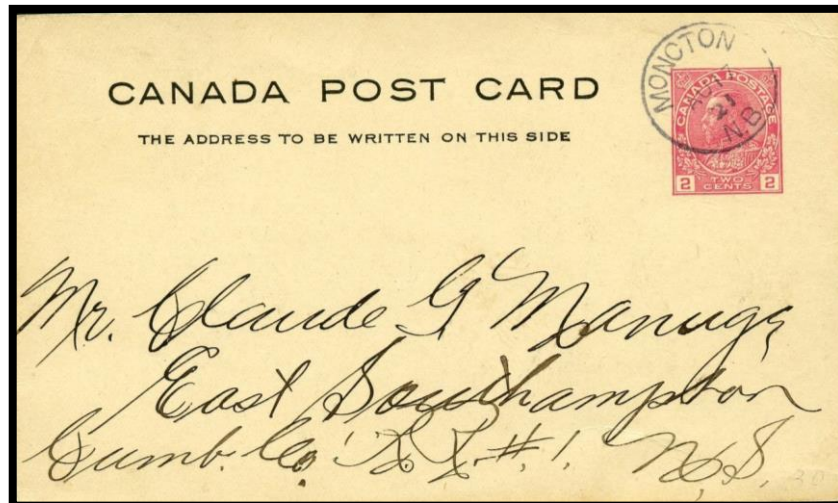 CANADA POST CARD
THE ADDRESS TO BE WRITTEN ON THIS SIDE
MONCTON
21
N.B
CANADA POSTAGE
2 TWO CENTS 2
Mr. Claude G
East Southampton
Cumb. Co. R. R. #1. N.S.
30